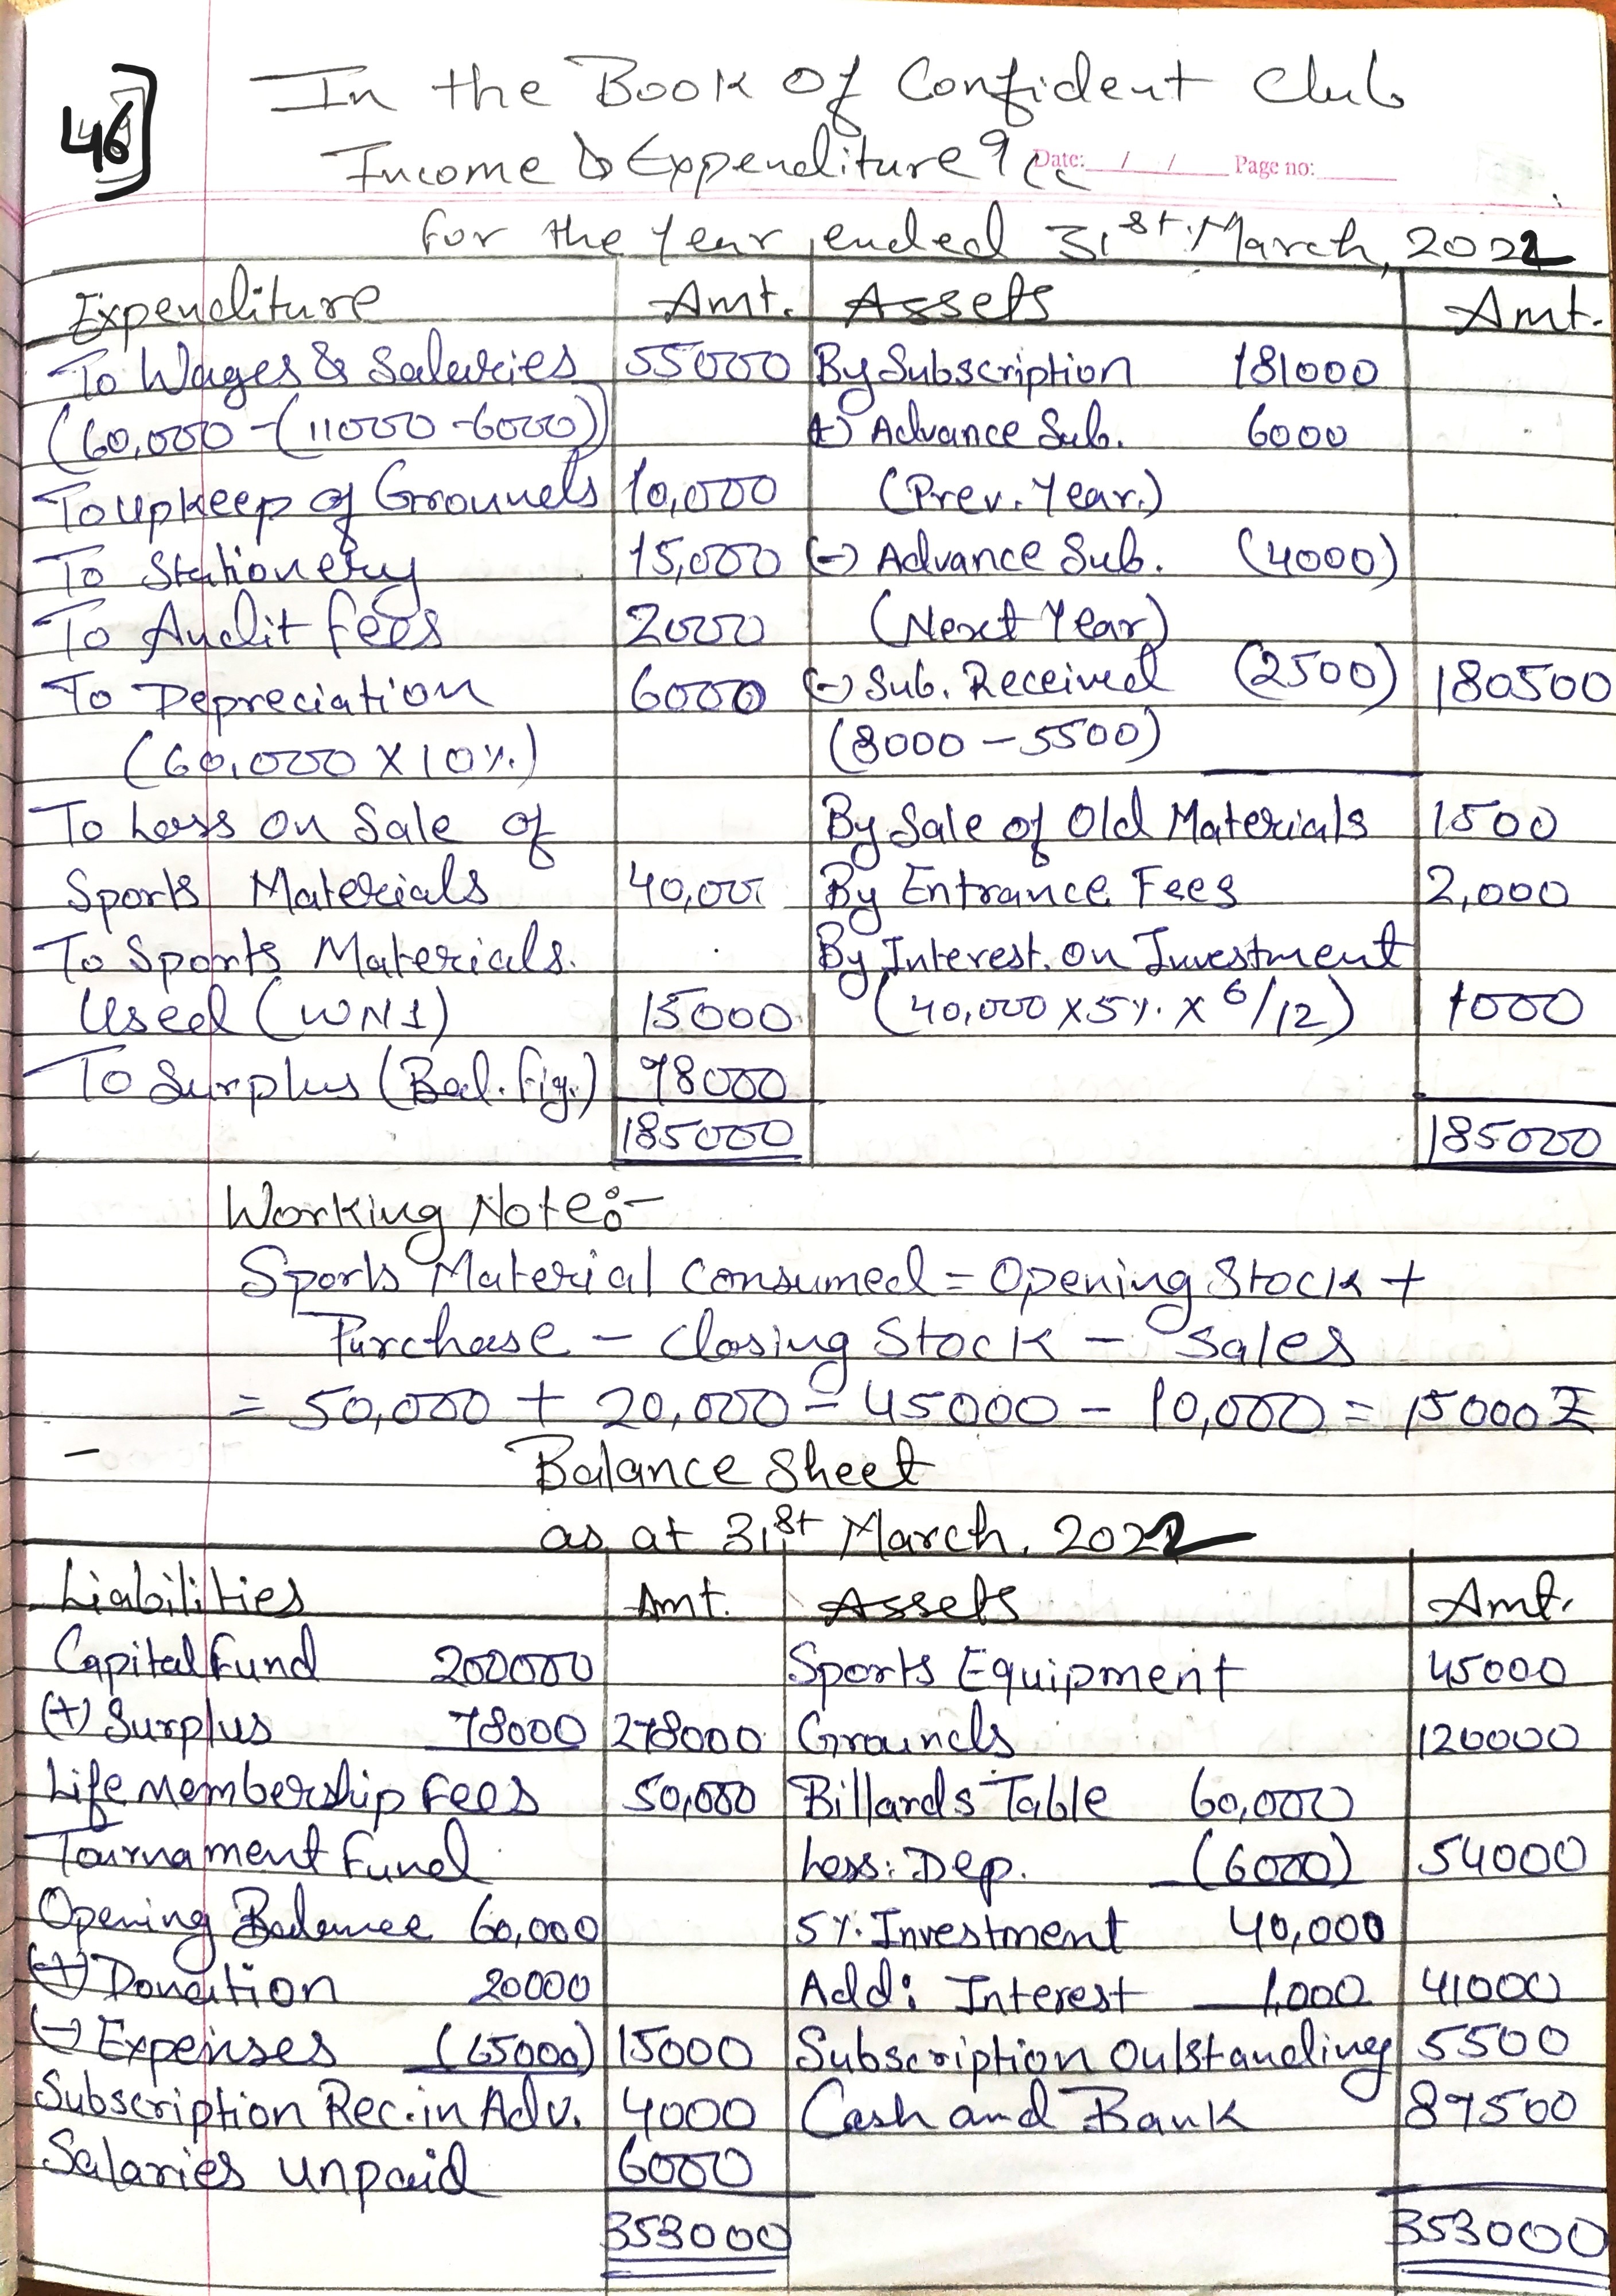 46]
In the Book Of Confident Club
Income & Expenditure A/c
Date: / / Page no:
for the Year ended 31st March, 2022
Expenditure Amt. Assets Amt.
To Wages & Salaries 55000 By Subscription 181000
(60,000 - (11000 - 6000)) (+) Advance Sub. 6000
To Upkeep of Grounds 10,000 (Prev. Year.)
To Stationery 15,000 (-) Advance Sub. (4000)
To Audit fees 2000 (Next Year)
To Depreciation 6000 (-) Sub. Received (2500) 180500
(60,000 X 10%) (8000 - 5500)
To Loss on Sale of By Sale of Old Materials 1500
Sports Materials 40,000 By Entrance Fees 2,000
To Sports Materials. By Interest. on Investment
Used (WN1) 15000 (40,000 X 5% X 6/12) 1000
To Surplus (Bal. fig.) 78000
185000 185000
Working Note:-
Sports Material Consumed = Opening Stock +
Purchase - Closing Stock - Sales
= 50,000 + 20,000 - 45000 - 10,000 = 15000 ₹
Balance Sheet
as at 31st March, 2022
Liabilities Amt. Assets Amt.
Capital Fund 200000 Sports Equipment 45000
(+) Surplus 78000 278000 Grounds 120000
Life Membership Fees 50,000 Billards Table 60,000
Tournament Fund Less: Dep. (6000) 54000
Opening Balance 60,000 5% Investment 40,000
(+) Donation 20000 Add: Interest 1,000 41000
(-) Expenses (65000) 15000 Subscription Outstanding 5500
Subscription Rec. in Adv. 4000 Cash and Bank 87500
Salaries unpaid 6000
353000 353000